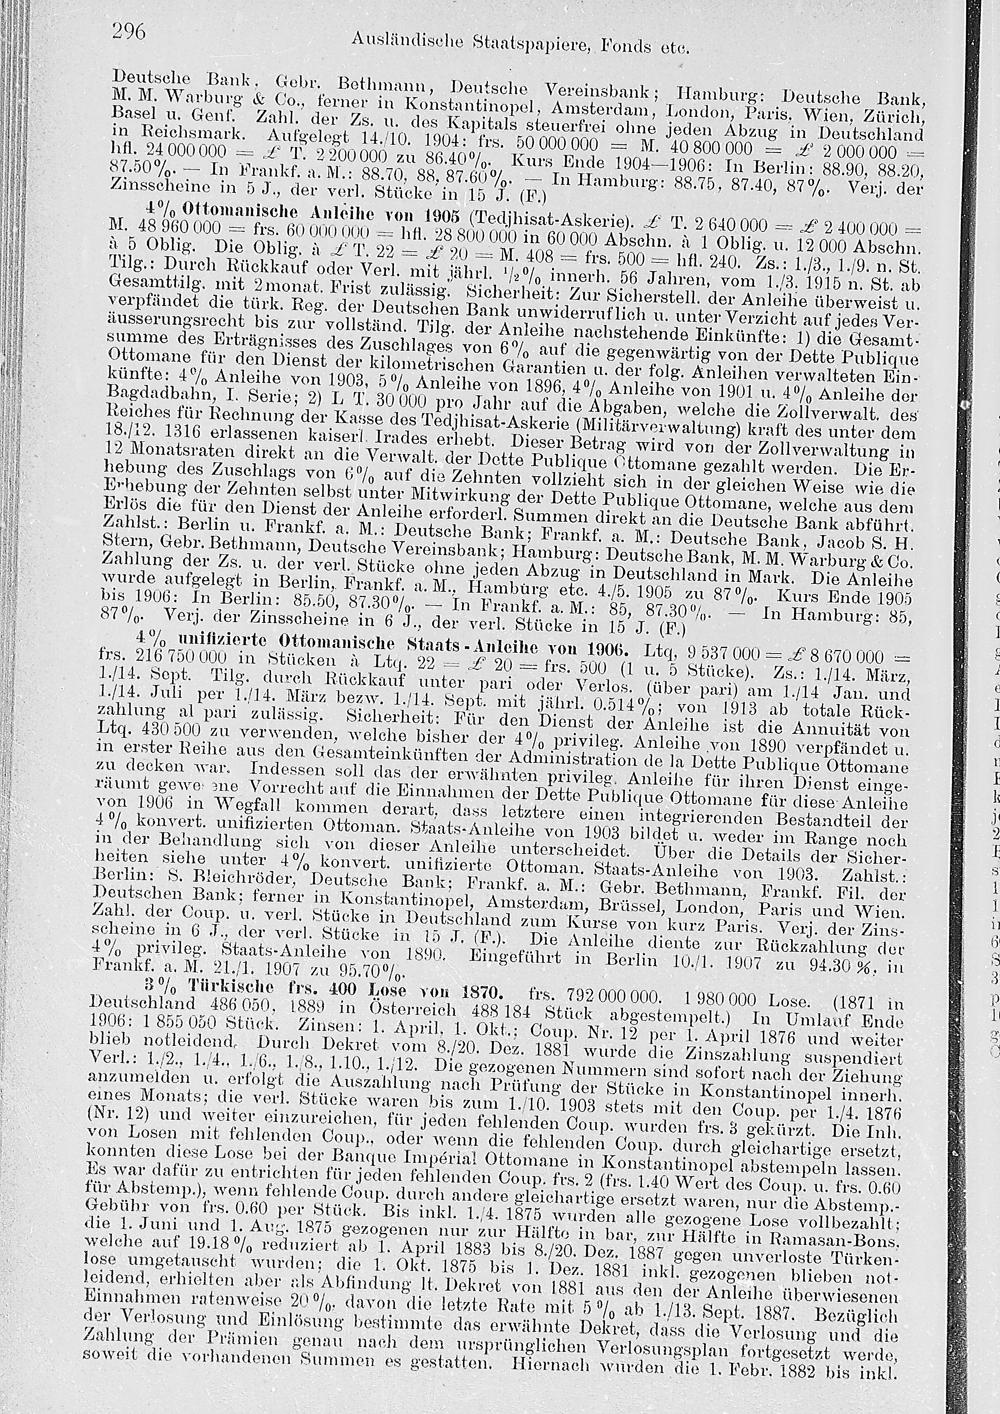 296
Ausländische Staatspapiere, Fonds etc.
Deutsche Bank, Gebr. Bethmann, Deutsche Vereinsbank; Hamburg: Deutsche Bank,
M. M. Warburg & Co., ferner in Konstantinopel, Amsterdam, London, Paris, Wien, Zürich,
Basel u. Genf. Zahl. der Zs. u. des Kapitals steuerfrei ohne jeden Abzug in Deutschland
in Reichsmark. Aufgelegt 14./10. 1904: frs. 50 000 000 = M. 40 800 000 = £ 2 000 000 =
hfl. 24 000 000 = £ T. 2 200 000 zu 86.40%. Kurs Ende 1904—1906: In Berlin: 88.90, 88.20,
87.50%. — In Frankf. a. M.: 88.70, 88, 87.60%. — In Hamburg: 88.75, 87.40, 87%. Verj. der
Zinsscheine in 5 J., der verl. Stücke in 15 J. (F.)
4% Ottomanische Anleihe von 1905 (Tedjhisat-Askerie). £ T. 2 640 000 = £ 2 400 000 =
M. 48 960 000 = frs. 60 000 000 = hfl. 28 800 000 in 60 000 Abschn. à 1 Oblig. u. 12 000 Abschn.
à 5 Oblig. Die Oblig. à £ T. 22 = £ 20 = M. 408 = frs. 500 = hfl. 240. Zs.: 1./3., 1./9. n. St.
Tilg.: Durch Rückkauf oder Verl. mit jährl. 1/2% innerh. 56 Jahren, vom 1./3. 1915 n. St. ab
Gesamttilg. mit 2monat. Frist zulässig. Sicherheit: Zur Sicherstell. der Anleihe überweist u.
verpfändet die türk. Reg. der Deutschen Bank unwiderruflich u. unter Verzicht auf jedes Ver-
äusserungsrecht bis zur vollständ. Tilg. der Anleihe nachstehende Einkünfte: 1) die Gesamt-
summe des Erträgnisses des Zuschlages von 6% auf die gegenwärtig von der Dette Publique
Ottomane für den Dienst der kilometrischen Garantien u. der folg. Anleihen verwalteten Ein-
künfte: 4% Anleihe von 1903, 5% Anleihe von 1896, 4% Anleihe von 1901 u. 4% Anleihe der
Bagdadbahn, I. Serie; 2) L T. 30 000 pro Jahr auf die Abgaben, welche die Zollverwalt. des
Reiches für Rechnung der Kasse des Tedjhisat-Askerie (Militärverwaltung) kraft des unter dem
18./12. 1316 erlassenen kaiserl. Irades erhebt. Dieser Betrag wird von der Zollverwaltung in
12 Monatsraten direkt an die Verwalt. der Dette Publique Ottomane gezahlt werden. Die Er-
hebung des Zuschlags von 6% auf die Zehnten vollzieht sich in der gleichen Weise wie die
Erhebung der Zehnten selbst unter Mitwirkung der Dette Publique Ottomane, welche aus dem
Erlös die für den Dienst der Anleihe erforderl. Summen direkt an die Deutsche Bank abführt.
Zahlst.: Berlin u. Frankf. a. M.: Deutsche Bank; Frankf. a. M.: Deutsche Bank, Jacob S. H.
Stern, Gebr. Bethmann, Deutsche Vereinsbank; Hamburg: Deutsche Bank, M. M. Warburg & Co.
Zahlung der Zs. u. der verl. Stücke ohne jeden Abzug in Deutschland in Mark. Die Anleihe
wurde aufgelegt in Berlin, Frankf. a. M., Hamburg etc. 4./5. 1905 zu 87%. Kurs Ende 1905
bis 1906: In Berlin: 85.50, 87.30%. — In Frankf. a. M.: 85, 87.30%. — In Hamburg: 85,
87%. Verj. der Zinsscheine in 6 J., der verl. Stücke in 15 J. (F.)
4% unifizierte Ottomanische Staats-Anleihe von 1906. Ltq. 9 537 000 = £ 8 670 000 =
frs. 216 750 000 in Stücken à Ltq. 22 = £ 20 = frs. 500 (1 u. 5 Stücke). Zs.: 1./14. März,
1./14. Sept. Tilg. durch Rückkauf unter pari oder Verlos. (über pari) am 1./14 Jan. und
1./14. Juli per 1./14. März bezw. 1./14. Sept. mit jährl. 0.514%; von 1913 ab totale Rück-
zahlung al pari zulässig. Sicherheit: Für den Dienst der Anleihe ist die Annuität von
Ltq. 430 500 zu verwenden, welche bisher der 4% privileg. Anleihe von 1890 verpfändet u.
in erster Reihe aus den Gesamteinkünften der Administration de la Dette Publique Ottomane
zu decken war. Indessen soll das der erwähnten privileg. Anleihe für ihren Dienst einge-
räumt gewe ene Vorrecht auf die Einnahmen der Dette Publique Ottomane für diese Anleihe
von 1906 in Wegfall kommen derart, dass letztere einen integrierenden Bestandteil der
4% konvert. unifizierten Ottoman. Staats-Anleihe von 1903 bildet u. weder im Range noch
in der Behandlung sich von dieser Anleihe unterscheidet. Über die Details der Sicher-
heiten siehe unter 4% konvert. unifizierte Ottoman. Staats-Anleihe von 1903. Zahlst.:
Berlin: S. Bleichröder, Deutsche Bank; Frankf. a. M.: Gebr. Bethmann, Frankf. Fil. der
Deutschen Bank; ferner in Konstantinopel, Amsterdam, Brüssel, London, Paris und Wien.
Zahl. der Coup. u. verl. Stücke in Deutschland zum Kurse von kurz Paris. Verj. der Zins-
scheine in 6 J., der verl. Stücke in 15 J. (F.). Die Anleihe diente zur Rückzahlung der
4% privileg. Staats-Anleihe von 1890. Eingeführt in Berlin 10./1. 1907 zu 94.30 %, in
Frankf. a. M. 21./1. 1907 zu 95.70%.
3% Türkische frs. 400 Lose von 1870. frs. 792 000 000. 1 980 000 Lose. (1871 in
Deutschland 486 050, 1889 in Österreich 488 184 Stück abgestempelt.) In Umlauf Ende
1906: 1 855 050 Stück. Zinsen: 1. April, 1. Okt.; Coup. Nr. 12 per 1. April 1876 und weiter
blieb notleidend. Durch Dekret vom 8./20. Dez. 1881 wurde die Zinszahlung suspendiert
Verl.: 1./2., 1./4., 1./6., 1./8., 1.10., 1./12. Die gezogenen Nummern sind sofort nach der Ziehung
anzumelden u. erfolgt die Auszahlung nach Prüfung der Stücke in Konstantinopel innerh.
eines Monats; die verl. Stücke waren bis zum 1./10. 1903 stets mit den Coup. per 1./4. 1876
(Nr. 12) und weiter einzureichen, für jeden fehlenden Coup. wurden frs. 3 gekürzt. Die Inh.
von Losen mit fehlenden Coup., oder wenn die fehlenden Coup. durch gleichartige ersetzt,
konnten diese Lose bei der Banque Impérial Ottomane in Konstantinopel abstempeln lassen.
Es war dafür zu entrichten für jeden fehlenden Coup. frs. 2 (frs. 1.40 Wert des Coup. u. frs. 0.60
für Abstemp.), wenn fehlende Coup. durch andere gleichartige ersetzt waren, nur die Abstemp.-
Gebühr von frs. 0.60 per Stück. Bis inkl. 1./4. 1875 wurden alle gezogene Lose vollbezahlt;
die 1. Juni und 1. Aug. 1875 gezogenen nur zur Hälfte in bar, zur Hälfte in Ramasan-Bons,
welche auf 19.18% reduziert ab 1. April 1883 bis 8./20. Dez. 1887 gegen unverloste Türken-
lose umgetauscht wurden; die 1. Okt. 1875 bis 1. Dez. 1881 inkl. gezogenen blieben not-
leidend, erhielten aber als Abfindung lt. Dekret von 1881 aus den der Anleihe überwiesenen
Einnahmen ratenweise 20%, davon die letzte Rate mit 5% ab 1./13. Sept. 1887. Bezüglich
der Verlosung und Einlösung bestimmte das erwähnte Dekret, dass die Verlosung und die
Zahlung der Prämien genau nach dem ursprünglichen Verlosungsplan fortgesetzt werde,
soweit die vorhandenen Summen es gestatten. Hiernach wurden die 1. Febr. 1882 bis inkl.